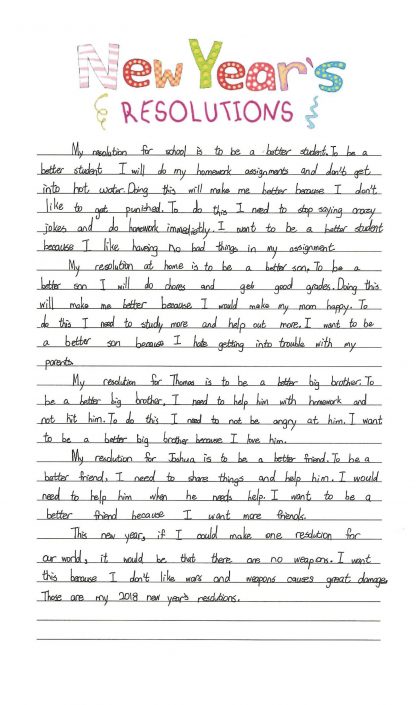 New Year's
RESOLUTIONS
My resolution for school is to be a better student. To be a
better student I will do my homework assignments and don't get
into hot water. Doing this will make me better because I don't
like to get punished. To do this I need to stop saying crazy
jokes and do homework immediatly. I want to be a better student
because I like having no bad things in my assignment.
My resolution at home is to be a better son. To be a
better son I will do chores and get good grades. Doing this
will make me better because I would make my mom happy. To
do this I need to study more and help out more. I want to be
a better son because I hate getting into trouble with my
parents.
My resolution for Thomas is to be a better big brother. To
be a better big brother, I need to help him with homework and
not hit him. To do this I need to not be angry at him. I want
to be a better big brother because I love him.
My resolution for Joshua is to be a better friend. To be a
better friend, I need to share things and help him. I would
need to help him when he needs help. I want to be a
better friend because I want more friends.
This new year, if I could make one resolution for
our world, it would be that there are no weapons. I want
this because I don't like wars and weapons causes great damage.
Those are my 2018 new year's resolutions.